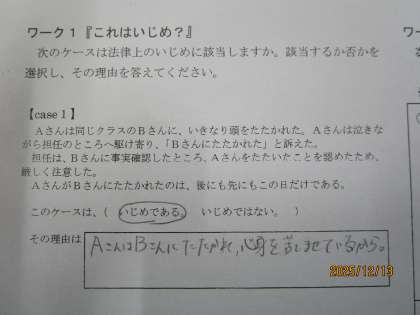 ワーク1『これはいじめ?』
次のケースは法律上のいじめに該当しますか。該当するか否かを
選択し、その理由を答えてください。
【case1】
AさんはB同じクラスのBさんに、いきなり頭をたたかれた。Aさんは泣きな
がら担任のところへ駆け寄り、「Bさんにたたかれた」と訴えた。
担任は、Bさんに事実確認したところ、Aさんをたたいたことを認めたため、
厳しく注意した。
AさんがBさんにたたかれたのは、後にも先にもこの日だけである。
このケースは、( いじめである。 いじめではない。 )
その理由は
AさんはBさんにたたかれ、心身を苦しませているから。
2025/12/13